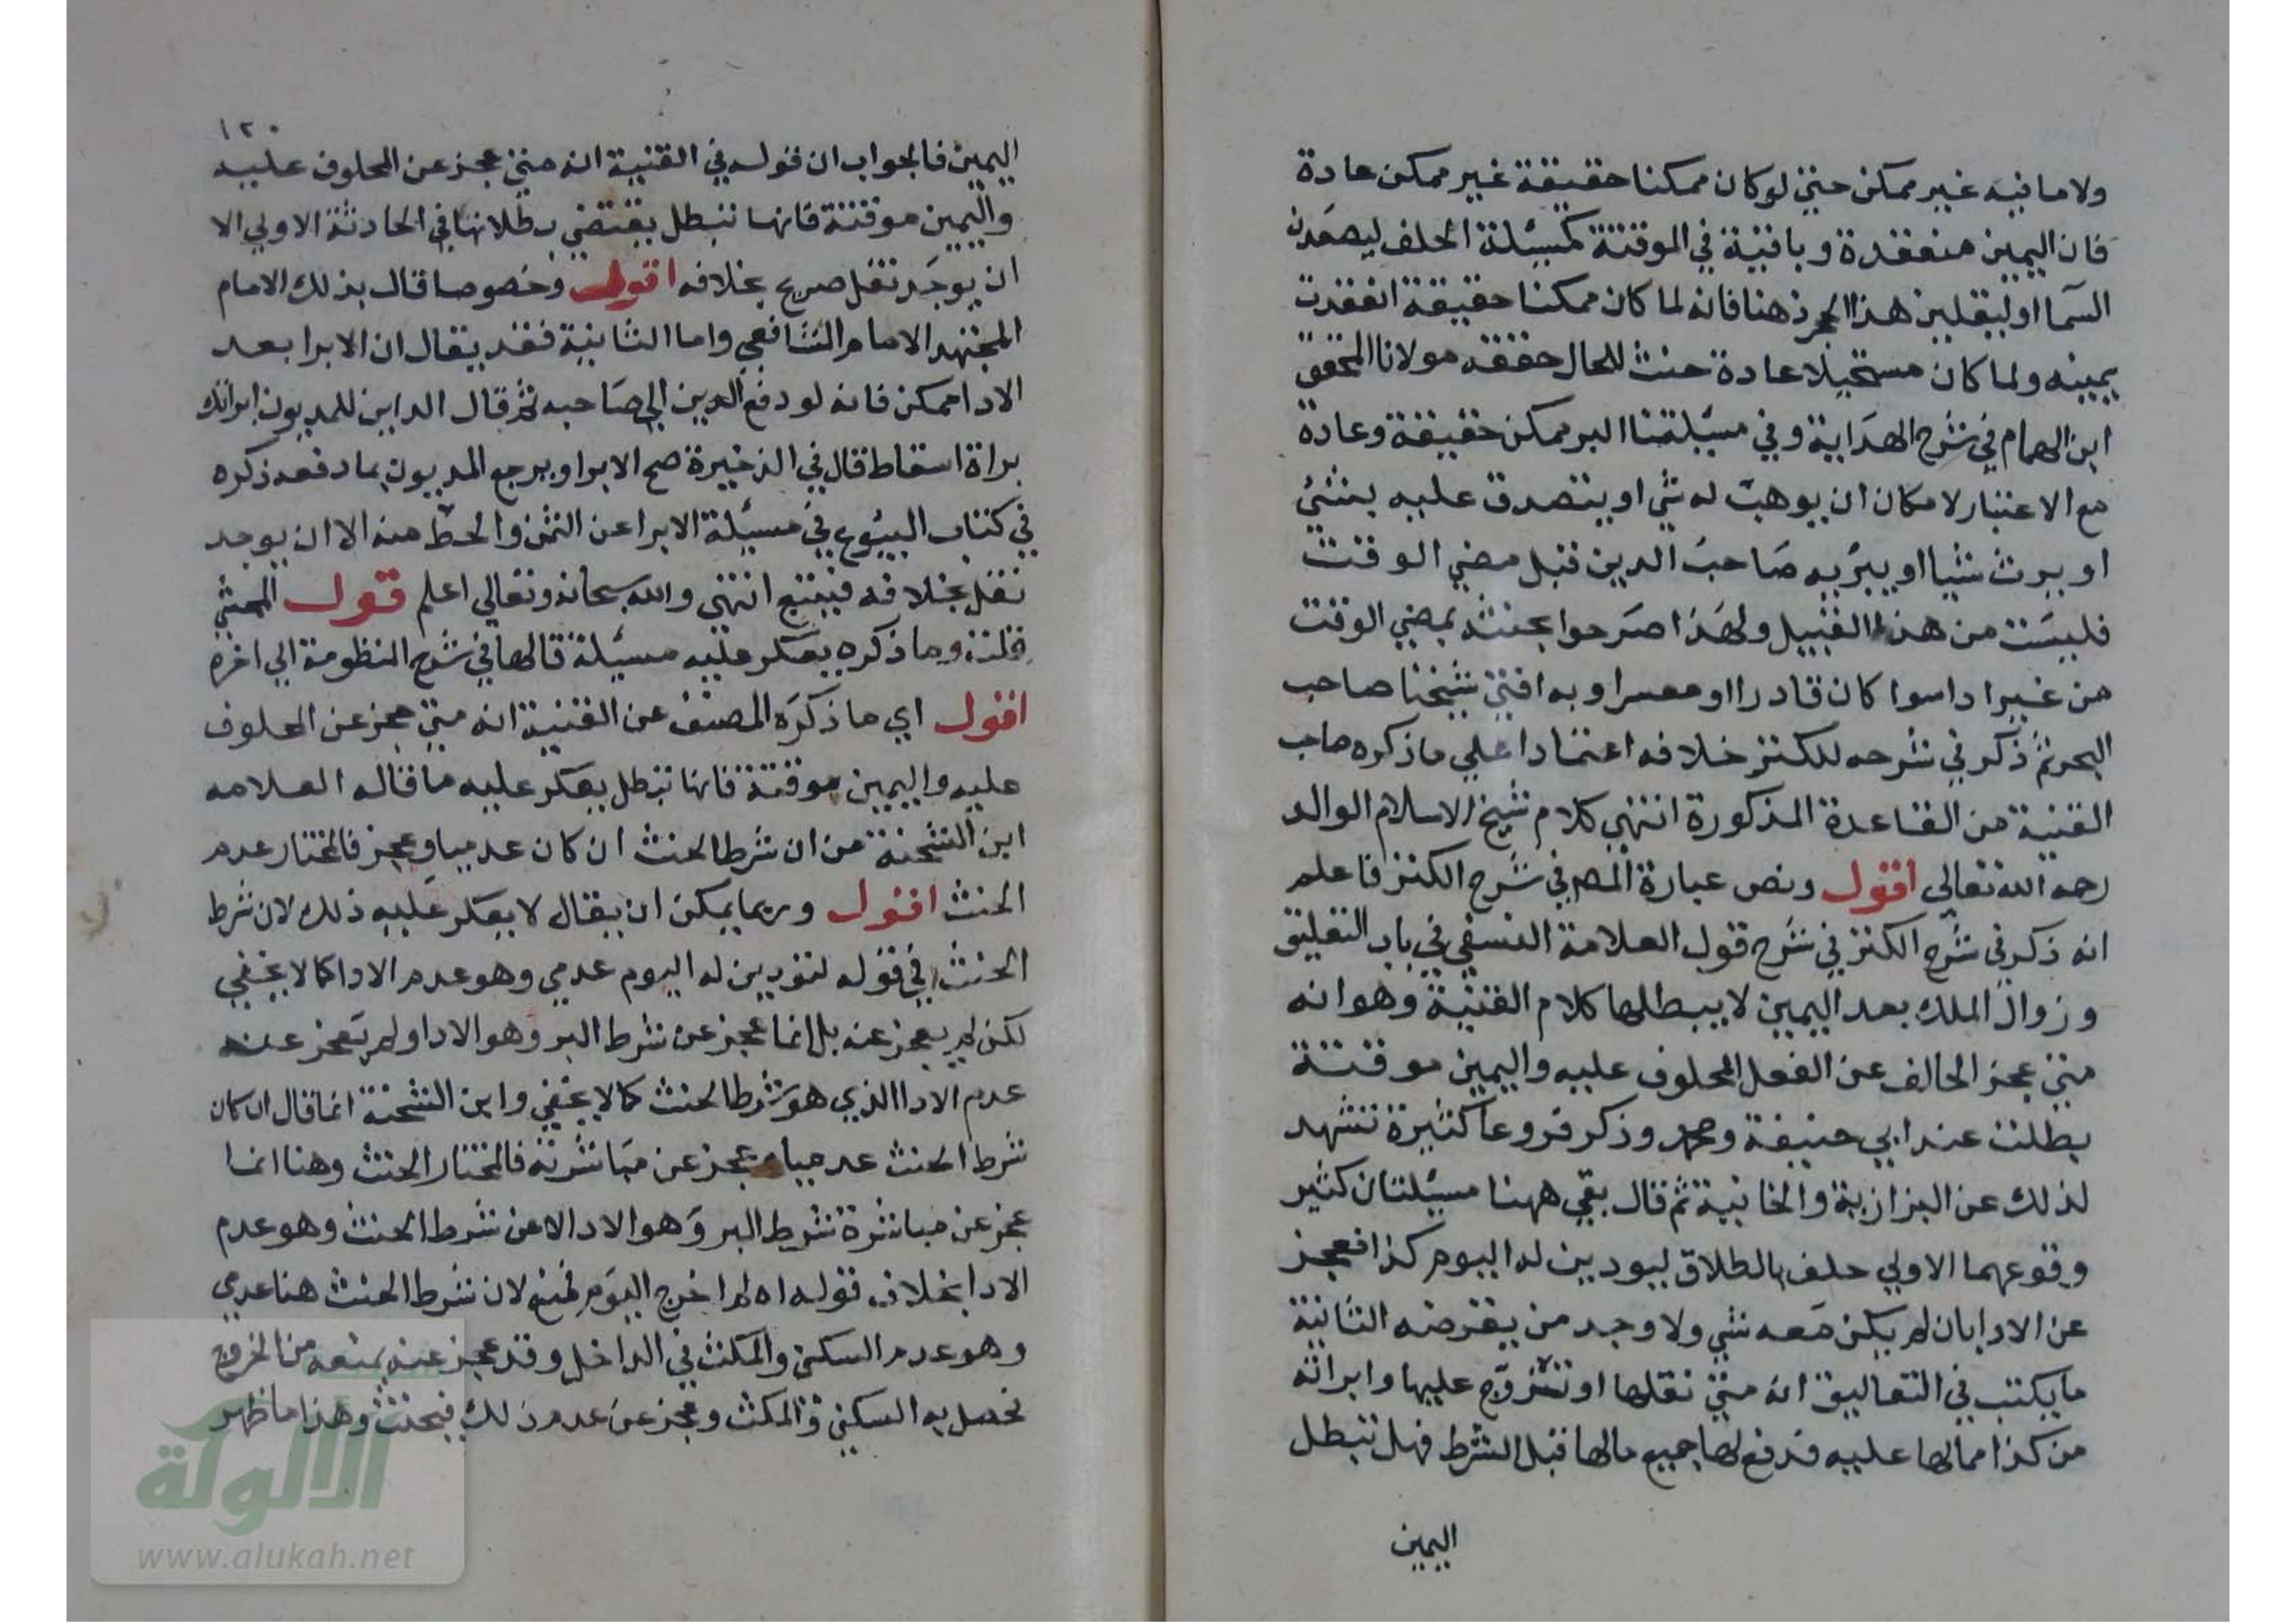 ولا ما فيه غير ممكن حتى لو كان ممكنا حقيقة غير ممكن عادة
فان اليمين منعقدة وباقية في الموقتة كمسئلة الحلف ليصعدن
السما او ليقلبن هذا الحجر ذهنا فانه لما كان ممكنا حقيقة انعقدت
يمينه ولما كان مستحيلا عادة حنث للحال حققه مولانا المحقق
ابن الهمام في شرح الهداية وفي مسئلتنا البر ممكن حقيقة وعادة
مع الاعتبار لامكان ان يوهب له شي او يتصدق عليه بشئ
او يرث شيا او يبريه صاحب الدين قبل مضي الوقت
فليست من هذا القبيل ولهذا صرحوا بحنثه بمضي الوقت
من غير اداسوا كان قادرا او معسرا وبه افتى شيخنا صاحب
البحر ثم ذكر في شرحه للكنز خلافه اعتمادا على ما ذكره صاحب
القنية من القاعدة المذكورة انتهى كلام شيخ الاسلام الوالد
رحمه الله تعالى اقول ونص عبارة المص في شرح الكنز فاعلم
انه ذكر في شرح الكنز في شرح قول العلامة النسفي في باب التعليق
وزوال الملك بعد اليمين لا يبطلها كلام القنية وهو انه
متى عجز الحالف عن الفعل المحلوف عليه واليمين موقتة
بطلت عند ابي حنيفة ومحمد وذكر فروعا كثيرة تشهد
لذلك عن البزازية والخانية ثم قال بقي ههنا مسئلتان كثير
وقوعهما الاولى حلف بالطلاق ليودين له اليوم كذا فعجز
عن الادا بان لم يكن معه شي ولا وجد من يقرضه الثانية
ما يكتب في التعاليق انه متى نقلها او تزوج عليها وابراته
من كذا مما لها عليه فدفع لها جميع مالها قبل الشرط فهل تبطل
اليمين
١٢٠
اليمين فالجواب ان قوله في القنية انه متى عجز عن المحلوف عليه
واليمين موقتة فانها تبطل يقتضي بطلانها في الحادثة الاولى الا
ان يوجد نقل صريح بخلافه اقول وخصوصا قال بذلك الامام
المجتهد الامام الشافعي واما الثانية فقد يقال ان الابرا بعد
الادا ممكن فانه لو دفع الدين الى صاحبه ثم قال الداين للمديون ابراتك
براة اسقاط قال في الذخيرة صح الابرا ويرجع المديون بما دفعه ذكره
في كتاب البيوع في مسئلة الابرا عن الثمن والحط منه الا ان يوجد
نقل بخلافه فيتبع انتهى والله سبحانه وتعالى اعلم قول المحشي
قلت وما ذكره يعكر عليه مسئلة قالها في شرح المنظومة الى اخره
اقول اي ما ذكره المصنف عن القنية انه متى عجز عن المحلوف
عليه واليمين موقتة فانها تبطل يعكر عليه ما قاله العلامه
ابن الشحنة من ان شرط الحنث ان كان عدميا وعجز فالمختار عدم
الحنث اقول وربما يمكن ان يقال لا يعكر عليه ذلك لان شرط
الحنث في قوله لتودين له اليوم عدمي وهو عدم الادا كما لا يخفى
لكن لم يعجز عنه بل انما عجز عن شرط البر وهو الادا ولم يعجز عنه
عدم الادا الذي هو شرط الحنث كما لا يخفى وابن الشحنة انما قال ان كان
شرط الحنث عدميا وعجز عن مباشرته فالمختار الحنث وهنا انما
عجز عن مباشرة شرط البر وهو الادا لا عن شرط الحنث وهو عدم
الادا بخلاف قوله ان لم اخرج اليوم لان شرط الحنث هنا عدمي
وهو عدم السكنى والمكث في الداخل وقد عجز عنه بمنعه من الخروج
فحصل به السكنى والمكث وعجز عن عدم ذلك فيحنث وهذا ما ظهر
الألوكة
www.alukah.net